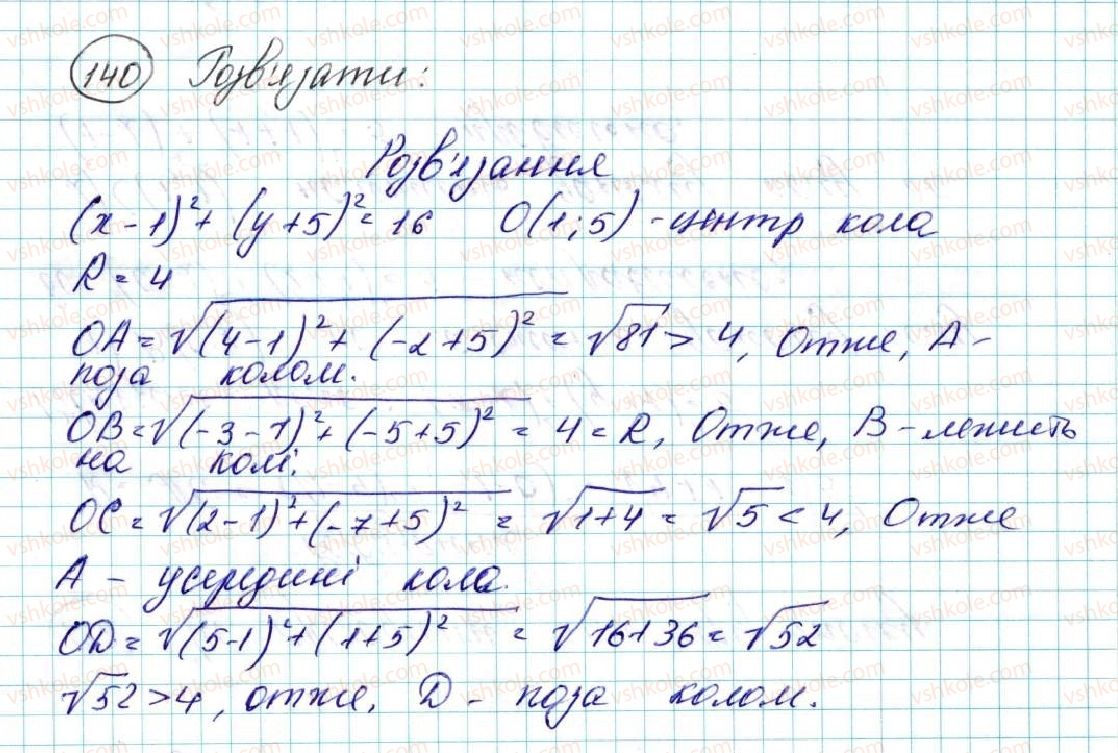 140 Розв'язати:
Розв'язання
(x-1)²+(y+5)²=16 O(1;5)-центр кола
R=4
OA=√((4-1)²+(-2+5)²)=√81>4, Отже, A-
поза колом.
OB=√((-3-1)²+(-5+5)²)=4=R, Отже, B-лежить
на колі.
OC=√((2-1)²+(-7+5)²)=√(1+4)=√5<4, Отже
A - усередині кола.
OD=√((5-1)²+(1+5)²)=√(16+36)=√52
√52>4, отже, D - поза колом.